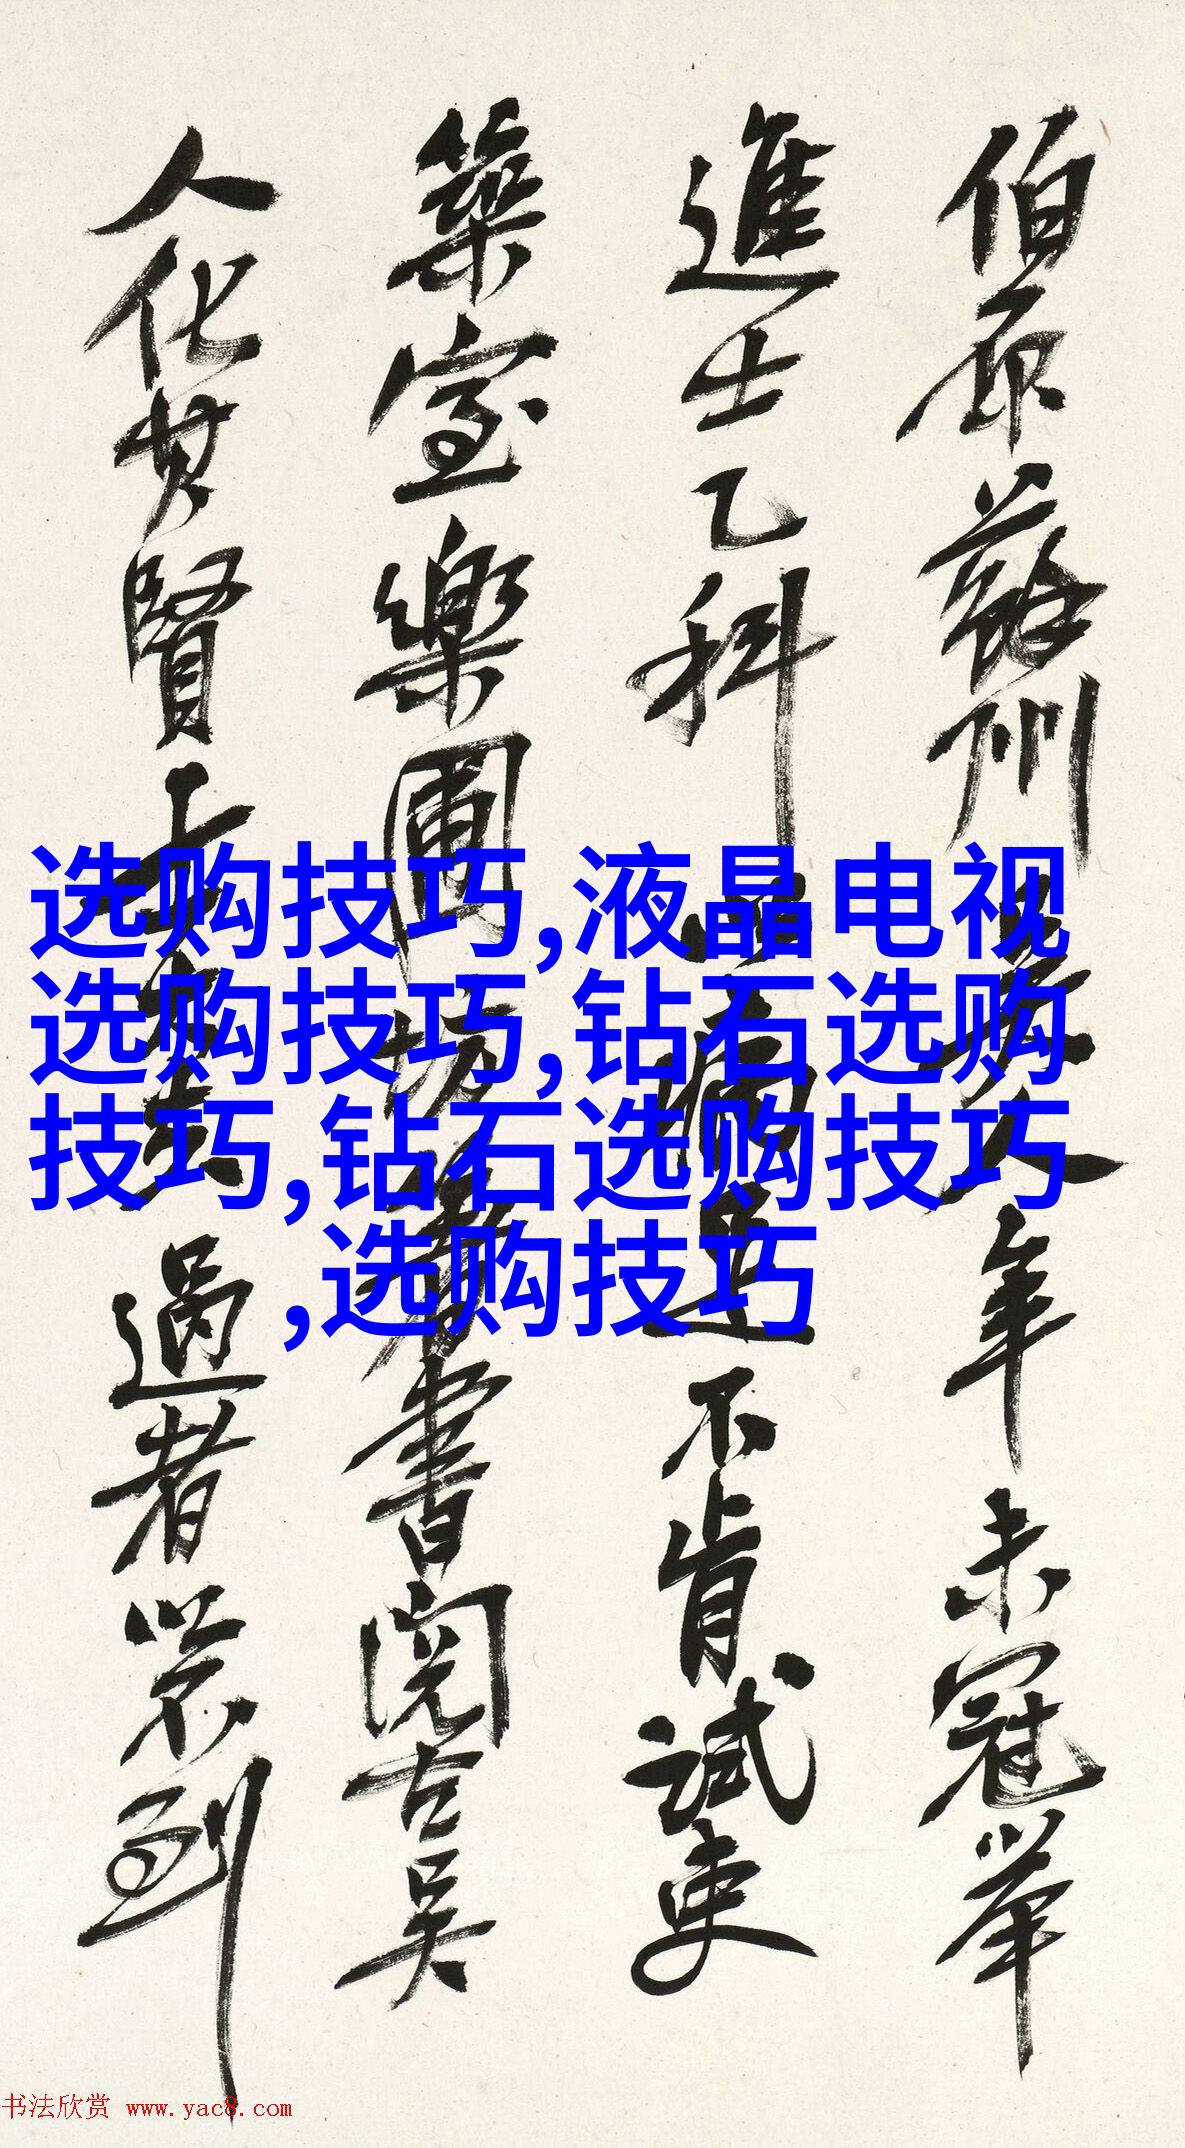 伯原蘇州人年未冠舉
進士乙科以病足不肯試吏
築室樂圃坊著書閱古吳
人化其賢過者以不到
选购技巧,液晶电视
选购技巧,钻石选购
技巧,钻石选购技巧
,选购技巧
书法欣赏 www.yac8.com